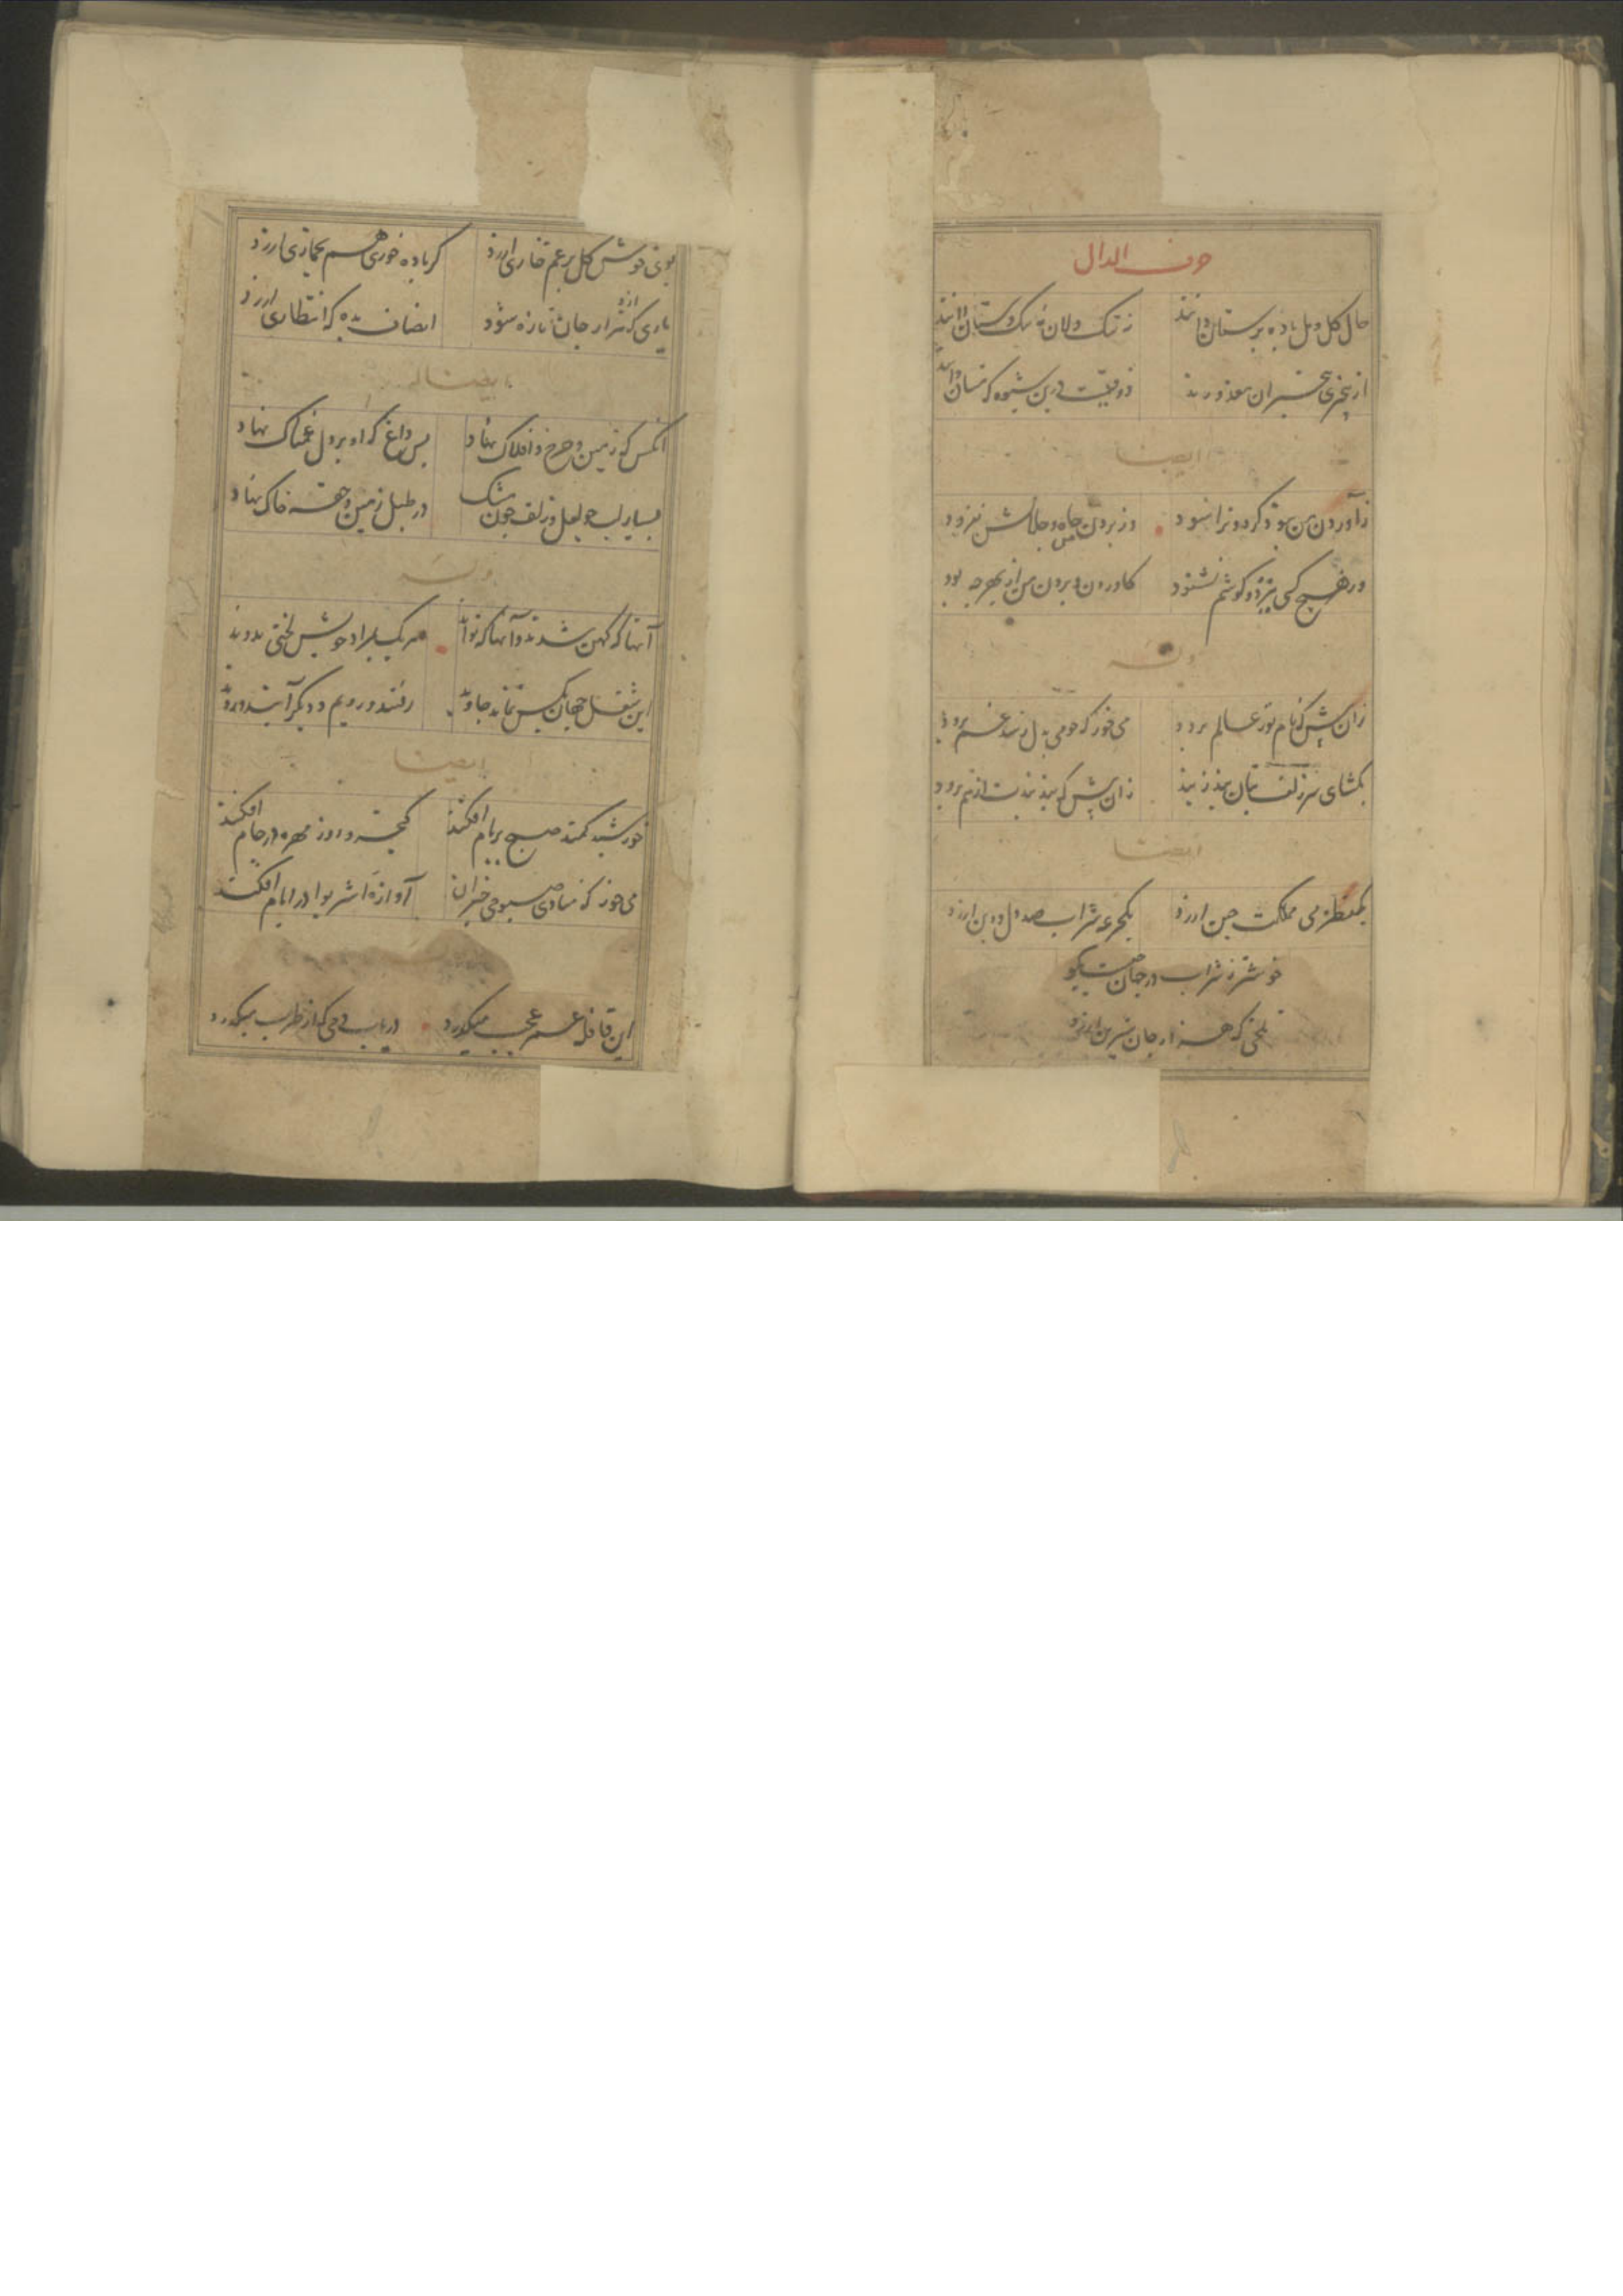 حرف الدال
حال گل و مل باده پرستان دانند نه تنک دلان و تنک دستان دانند
از بیخبری بیخبران معذورند ذوقیست درین شیوه که مستان دانند
ایضا
ز آوردن من نبود کردون را سود وز بردن من جاه و جلالش نفزود
وز هیچ کسی نیز دو کوشم نشنود کاوردن و بردن من از بهر چه بود
وله
زان پیش که نام تو ز عالم برود می خور که چو می بدل رسد غم برود
بکشای سر زلف بتان بند ز بند زان پیش که بند بندت از هم برود
ایضا
یکقطره می مملکت چین ارزد یکجرعه شراب صد دل و دین ارزد
خوشتر ز شراب در جهان چیست بکو
تلخی که هزار جان شیرین ارزد
بوی خوش گل بزخم خاری ارزد گر باده خوری هم بخماری ارزد
یاری که ازو هزار جان تازه شود انصاف بده که انتظاری ارزد
ایضا له
آنکس که زمین و چرخ و افلاک نهاد بس داغ که او بر دل غمناک نهاد
بسیار لب چو لعل و زلف چون مشک در طبل زمین و حقه خاک نهاد
وله
آنها که کهن شدند و آنها که نوند هر یک بمراد خویش لختی بدوند
این شغل جهان بکس نماند جاوید رفتند و رویم و دیگر آیند و روند
ایضا
خورشید کمند صبح بر بام افکند کیخسرو روز مهره در جام افکند
می خور که منادی صبوحی خیزان آوازهٔ اشربوا در ایام افکند
این قافله عمر عجب میگذرد دریاب دمی که از طرب میگذرد